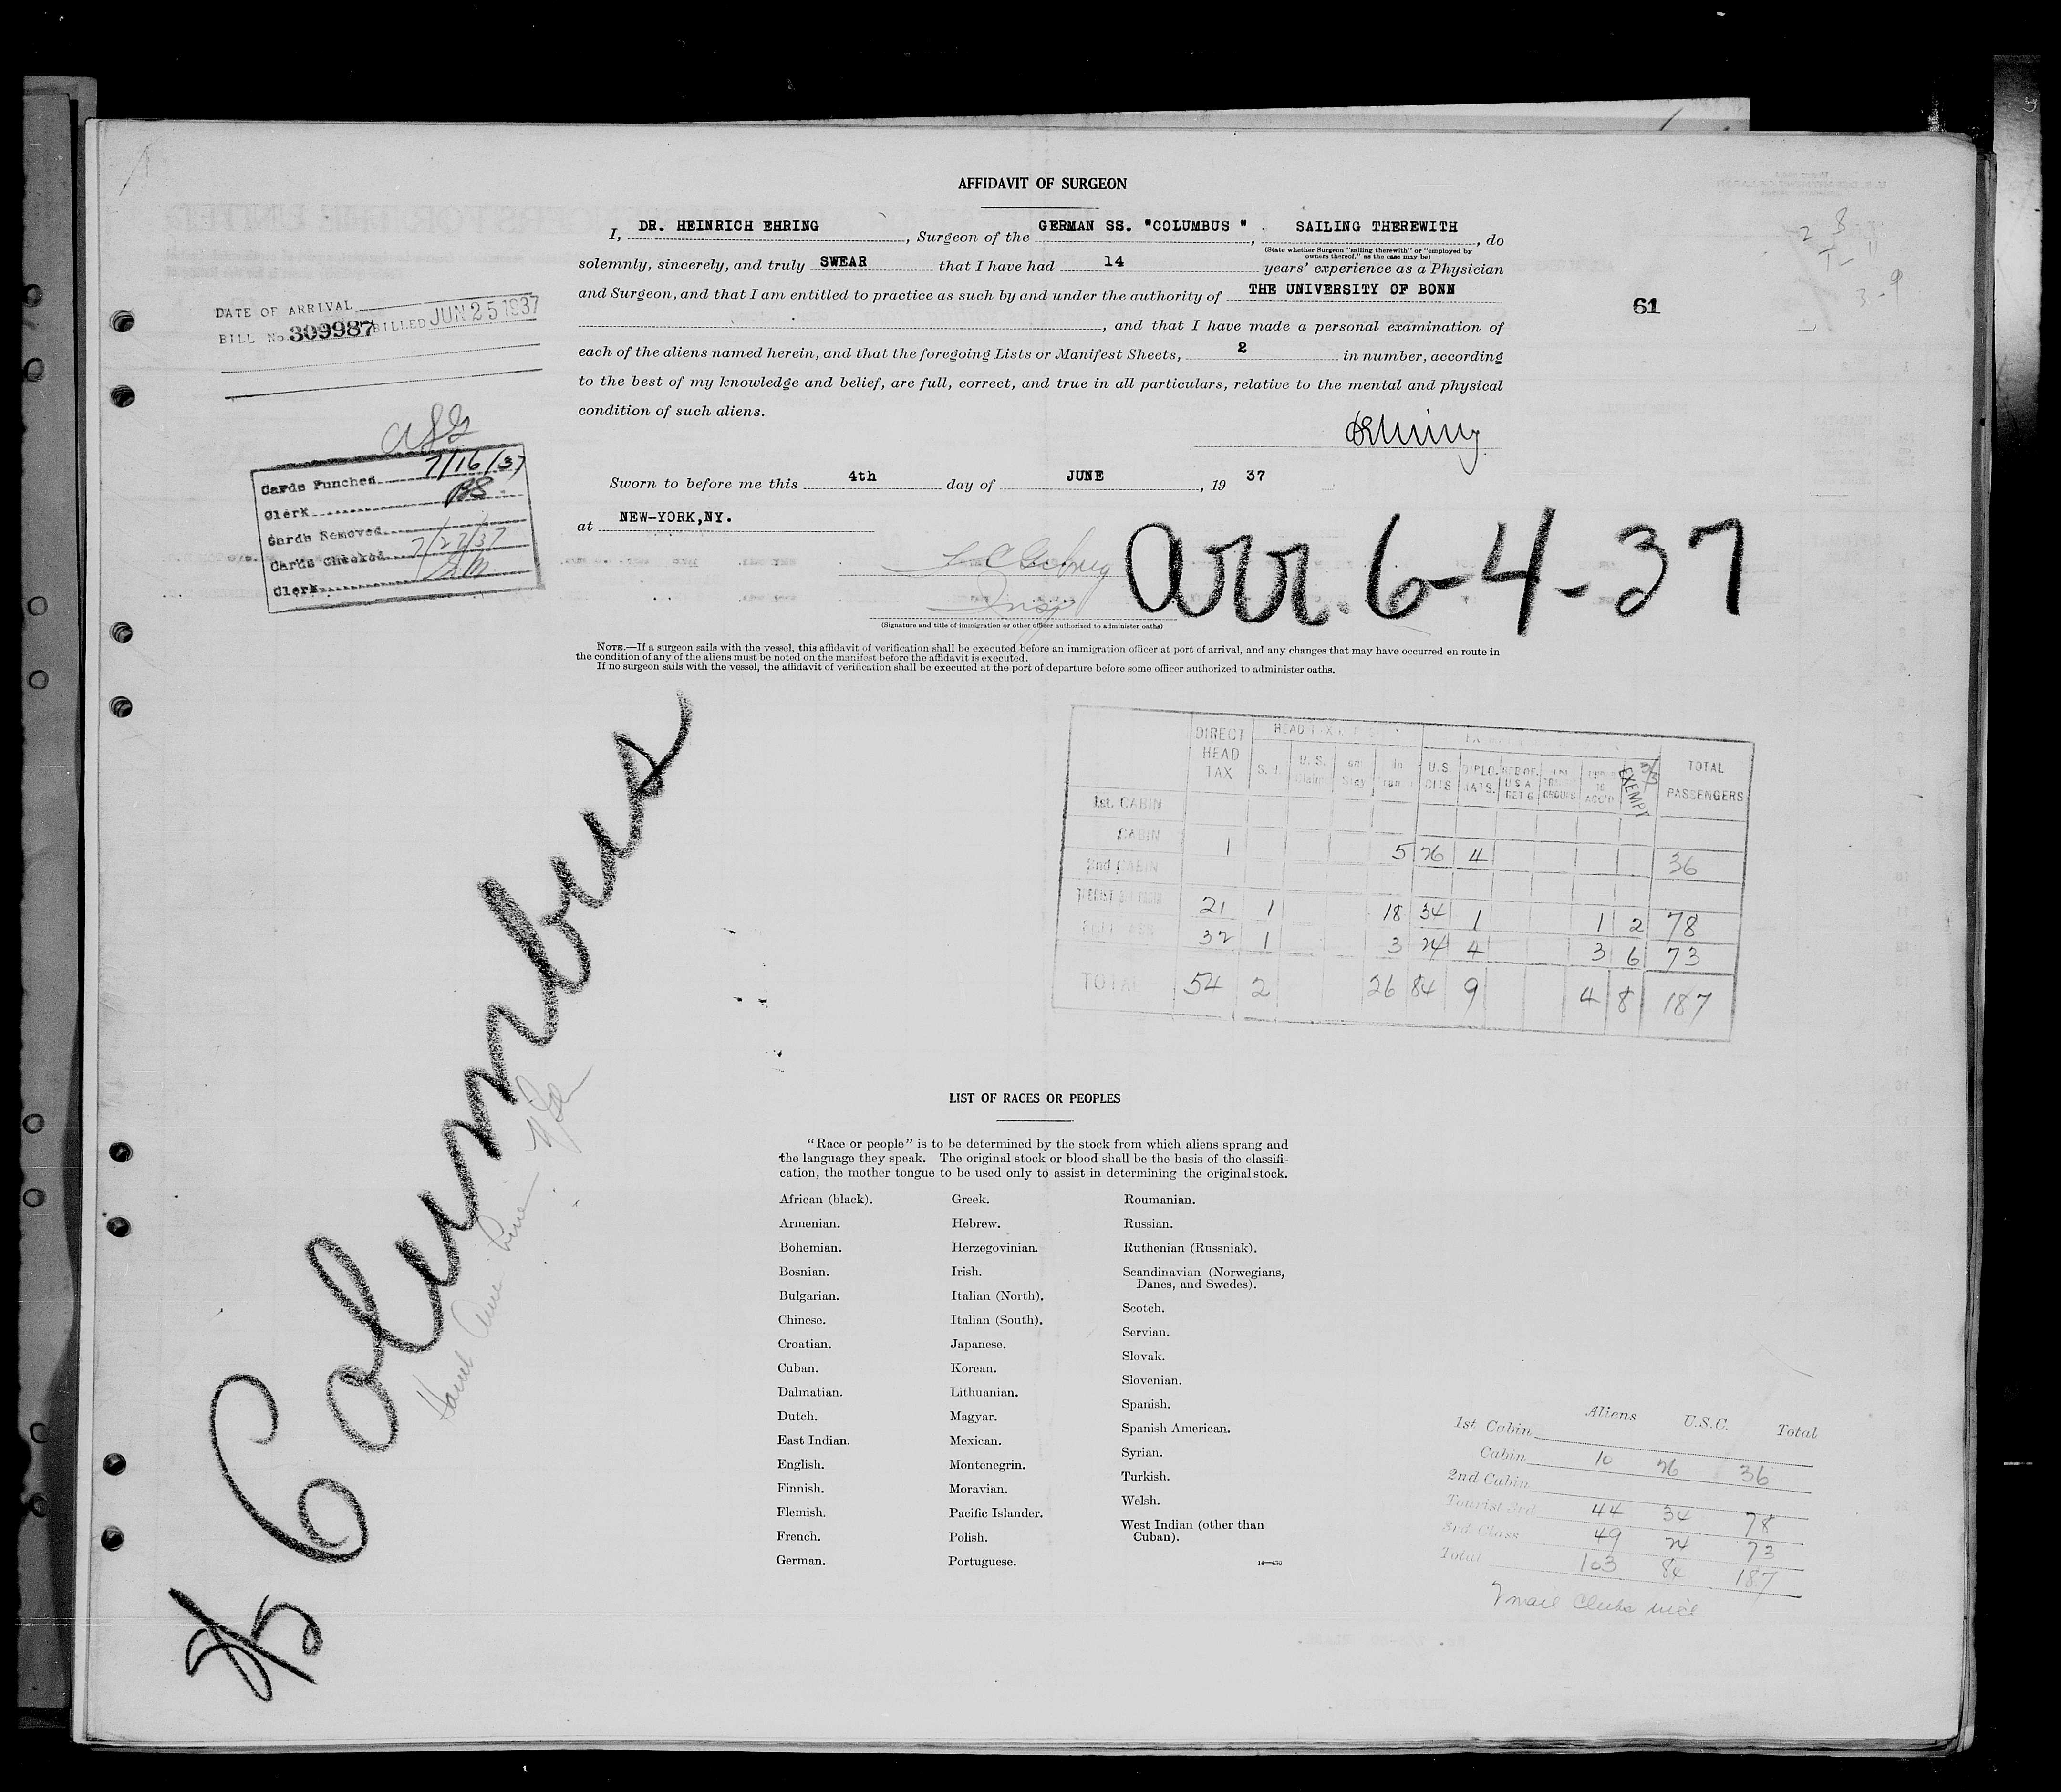 AFFIDAVIT OF SURGEON
I, DR. HEINRICH EHRING, Surgeon of the GERMAN SS. "COLUMBUS ", SAILING THEREWITH, do
(State whether Surgeon "sailing therewith" or "employed by
owners thereof," as the case may be)
solemnly, sincerely, and truly SWEAR that I have had 14 years' experience as a Physician
and Surgeon, and that I am entitled to practice as such by and under the authority of THE UNIVERSITY OF BONN
, and that I have made a personal examination of
each of the aliens named herein, and that the foregoing Lists or Manifest Sheets, 2 in number, according
to the best of my knowledge and belief, are full, correct, and true in all particulars, relative to the mental and physical
condition of such aliens.
Sworn to before me this 4th day of JUNE, 19 37
at NEW-YORK,NY.
Insp
(Signature and title of immigration or other officer authorized to administer oaths)
Arr. 6-4-37
61
2 8
1-11
3-9
DATE OF ARRIVAL
BILL No. 309987 BILLED JUN 25 1937
Cards Punched 7/16/37
Clerk
Cards Removed
Cards Checked 7/27/37
Clerk
NOTE.—If a surgeon sails with the vessel, this affidavit of verification shall be executed before an immigration officer at port of arrival, and any changes that may have occurred en route in
the condition of any of the aliens must be noted on the manifest before the affidavit is executed.
If no surgeon sails with the vessel, the affidavit of verification shall be executed at the port of departure before some officer authorized to administer oaths.
SS Columbus
DIRECT HEAD TAX
U.S. Claim
In
U.S. CITS
DIPLO. MATS.
EXEMPT
TOTAL PASSENGERS
1st. CABIN
CABIN 1 5 26 4 36
2nd CABIN
TOURIST 3rd CABIN 21 1 18 34 1 1 2 78
3rd CLASS 32 1 3 24 4 3 6 73
TOTAL 54 2 26 84 9 4 8 187
LIST OF RACES OR PEOPLES
"Race or people" is to be determined by the stock from which aliens sprang and
the language they speak. The original stock or blood shall be the basis of the classifi-
cation, the mother tongue to be used only to assist in determining the original stock.
African (black).
Armenian.
Bohemian.
Bosnian.
Bulgarian.
Chinese.
Croatian.
Cuban.
Dalmatian.
Dutch.
East Indian.
English.
Finnish.
Flemish.
French.
German.
Greek.
Hebrew.
Herzegovinian.
Irish.
Italian (North).
Italian (South).
Japanese.
Korean.
Lithuanian.
Magyar.
Mexican.
Montenegrin.
Moravian.
Pacific Islander.
Polish.
Portuguese.
Roumanian.
Russian.
Ruthenian (Russniak).
Scandinavian (Norwegians,
Danes, and Swedes).
Scotch.
Servian.
Slovak.
Slovenian.
Spanish.
Spanish American.
Syrian.
Turkish.
Welsh.
West Indian (other than
Cuban).
Aliens U.S.C. Total
1st Cabin
Cabin 10 26 36
2nd Cabin
Tourist 3rd 44 34 78
3rd Class 49 24 73
Total 103 84 187